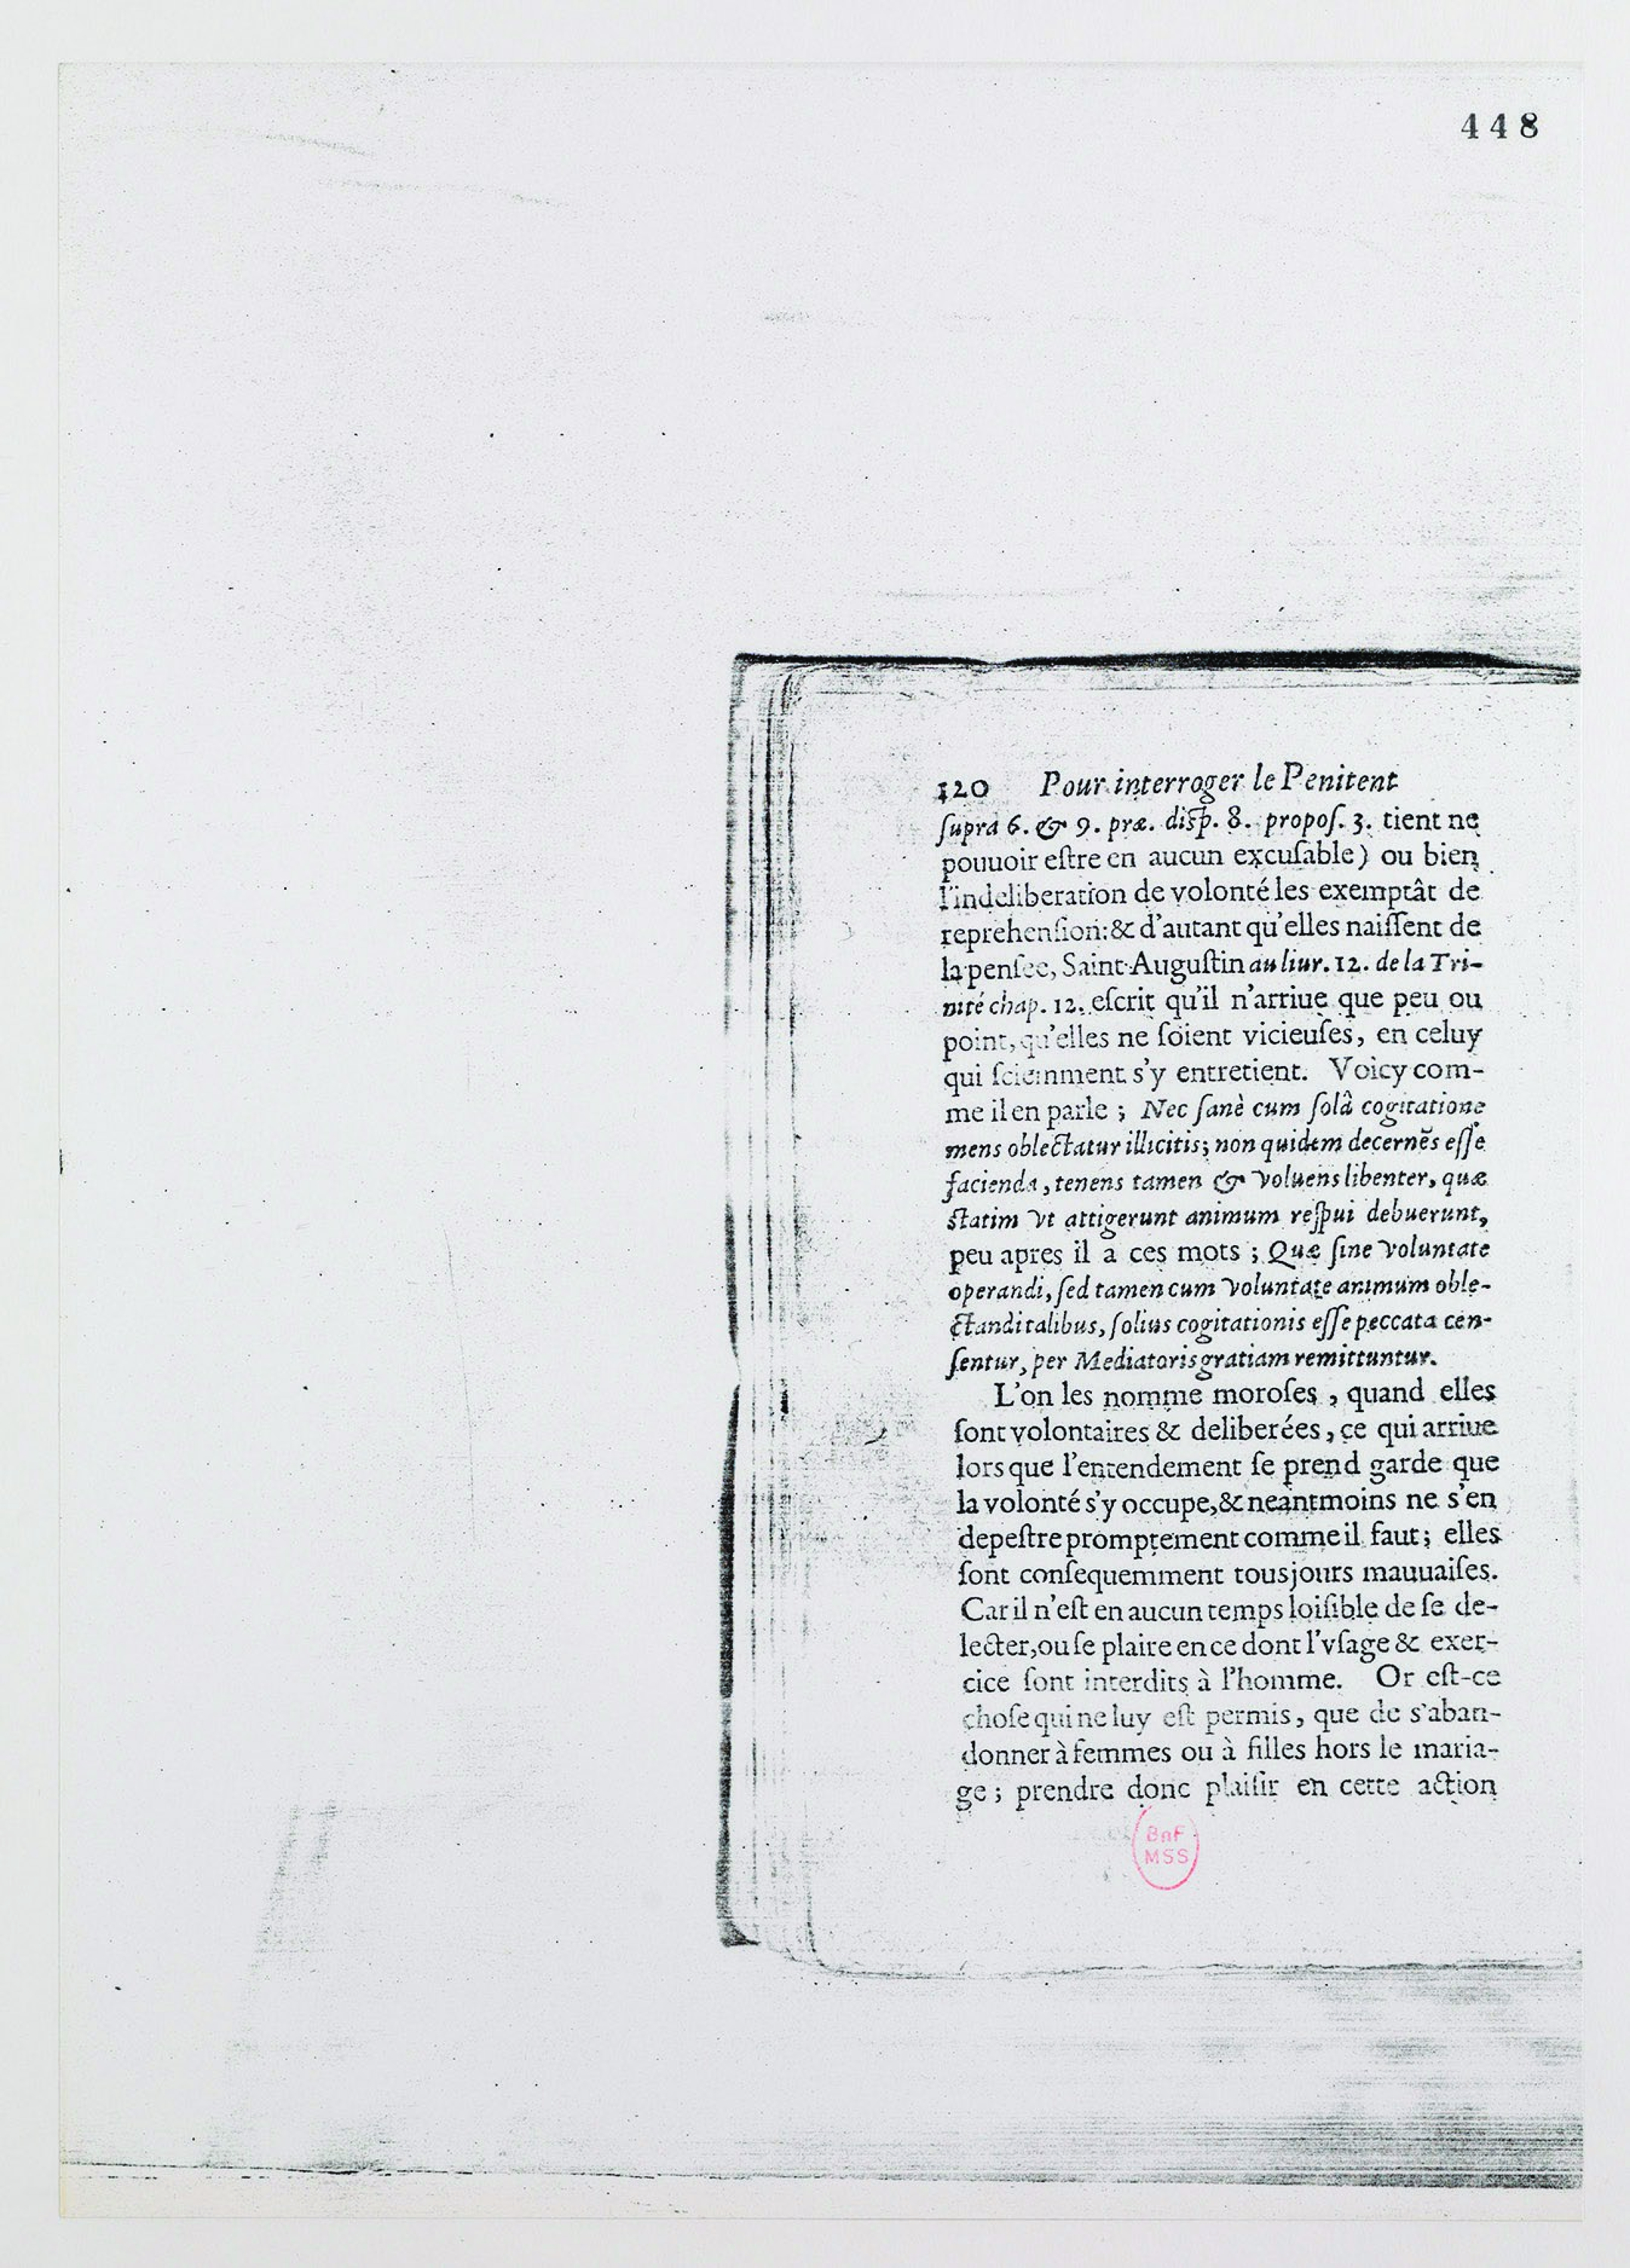 448
120 Pour interroger le Penitent
ſupra 6. & 9. præ. diſp. 8. propoſ. 3. tient ne
pouuoir eſtre en aucun excuſable) ou bien
l'indeliberation de volonté les exemptât de
reprehenſion: & d'autant qu'elles naiſſent de
la penſee, Saint Auguſtin au liur. 12. de la Tri-
nité chap. 12. eſcrit qu'il n'arriue que peu ou
point, qu'elles ne ſoient vicieuſes, en celuy
qui ſciemment s'y entretient. Voicy com-
me il en parle ; Nec ſanè cum ſolâ cogitatione
mens oblectatur illicitis; non quidem decernēs eſſe
facienda, tenens tamen & voluens libenter, quæ
ſtatim vt attigerunt animum reſpui debuerunt,
peu apres il a ces mots ; Quæ ſine voluntate
operandi, ſed tamen cum voluntate animum oble-
ctandi talibus, ſolius cogitationis eſſe peccata cen-
ſentur, per Mediatoris gratiam remittuntur.
L'on les nomme moroſes, quand elles
ſont volontaires & deliberées, ce qui arriue
lors que l'entendement ſe prend garde que
la volonté s'y occupe, & neantmoins ne s'en
depeſtre promptement comme il faut; elles
ſont conſequemment tousjours mauuaiſes.
Car il n'eſt en aucun temps loiſible de ſe de-
lecter, ou ſe plaire en ce dont l'vſage & exer-
cice ſont interdits à l'homme. Or eſt-ce
choſe qui ne luy eſt permis, que de s'aban-
donner à femmes ou à filles hors le maria-
ge ; prendre donc plaiſir en cette action
BnF
MSS